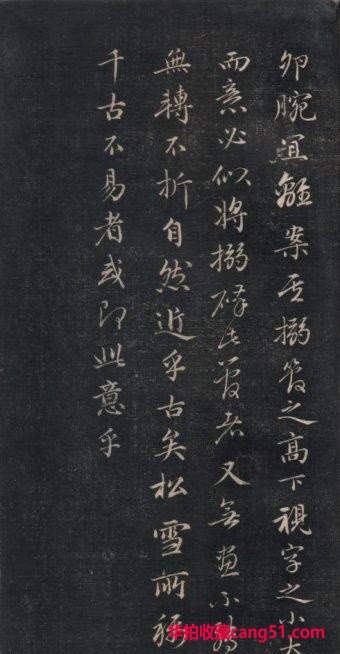 卯腕宜離案其搦管之高下視字之小大
而意必似將搦碎此管者又無畫不轉
無轉不折自然近乎古矣松雪所稱
千古不易者或即此意乎
华拍收藏cang51.com